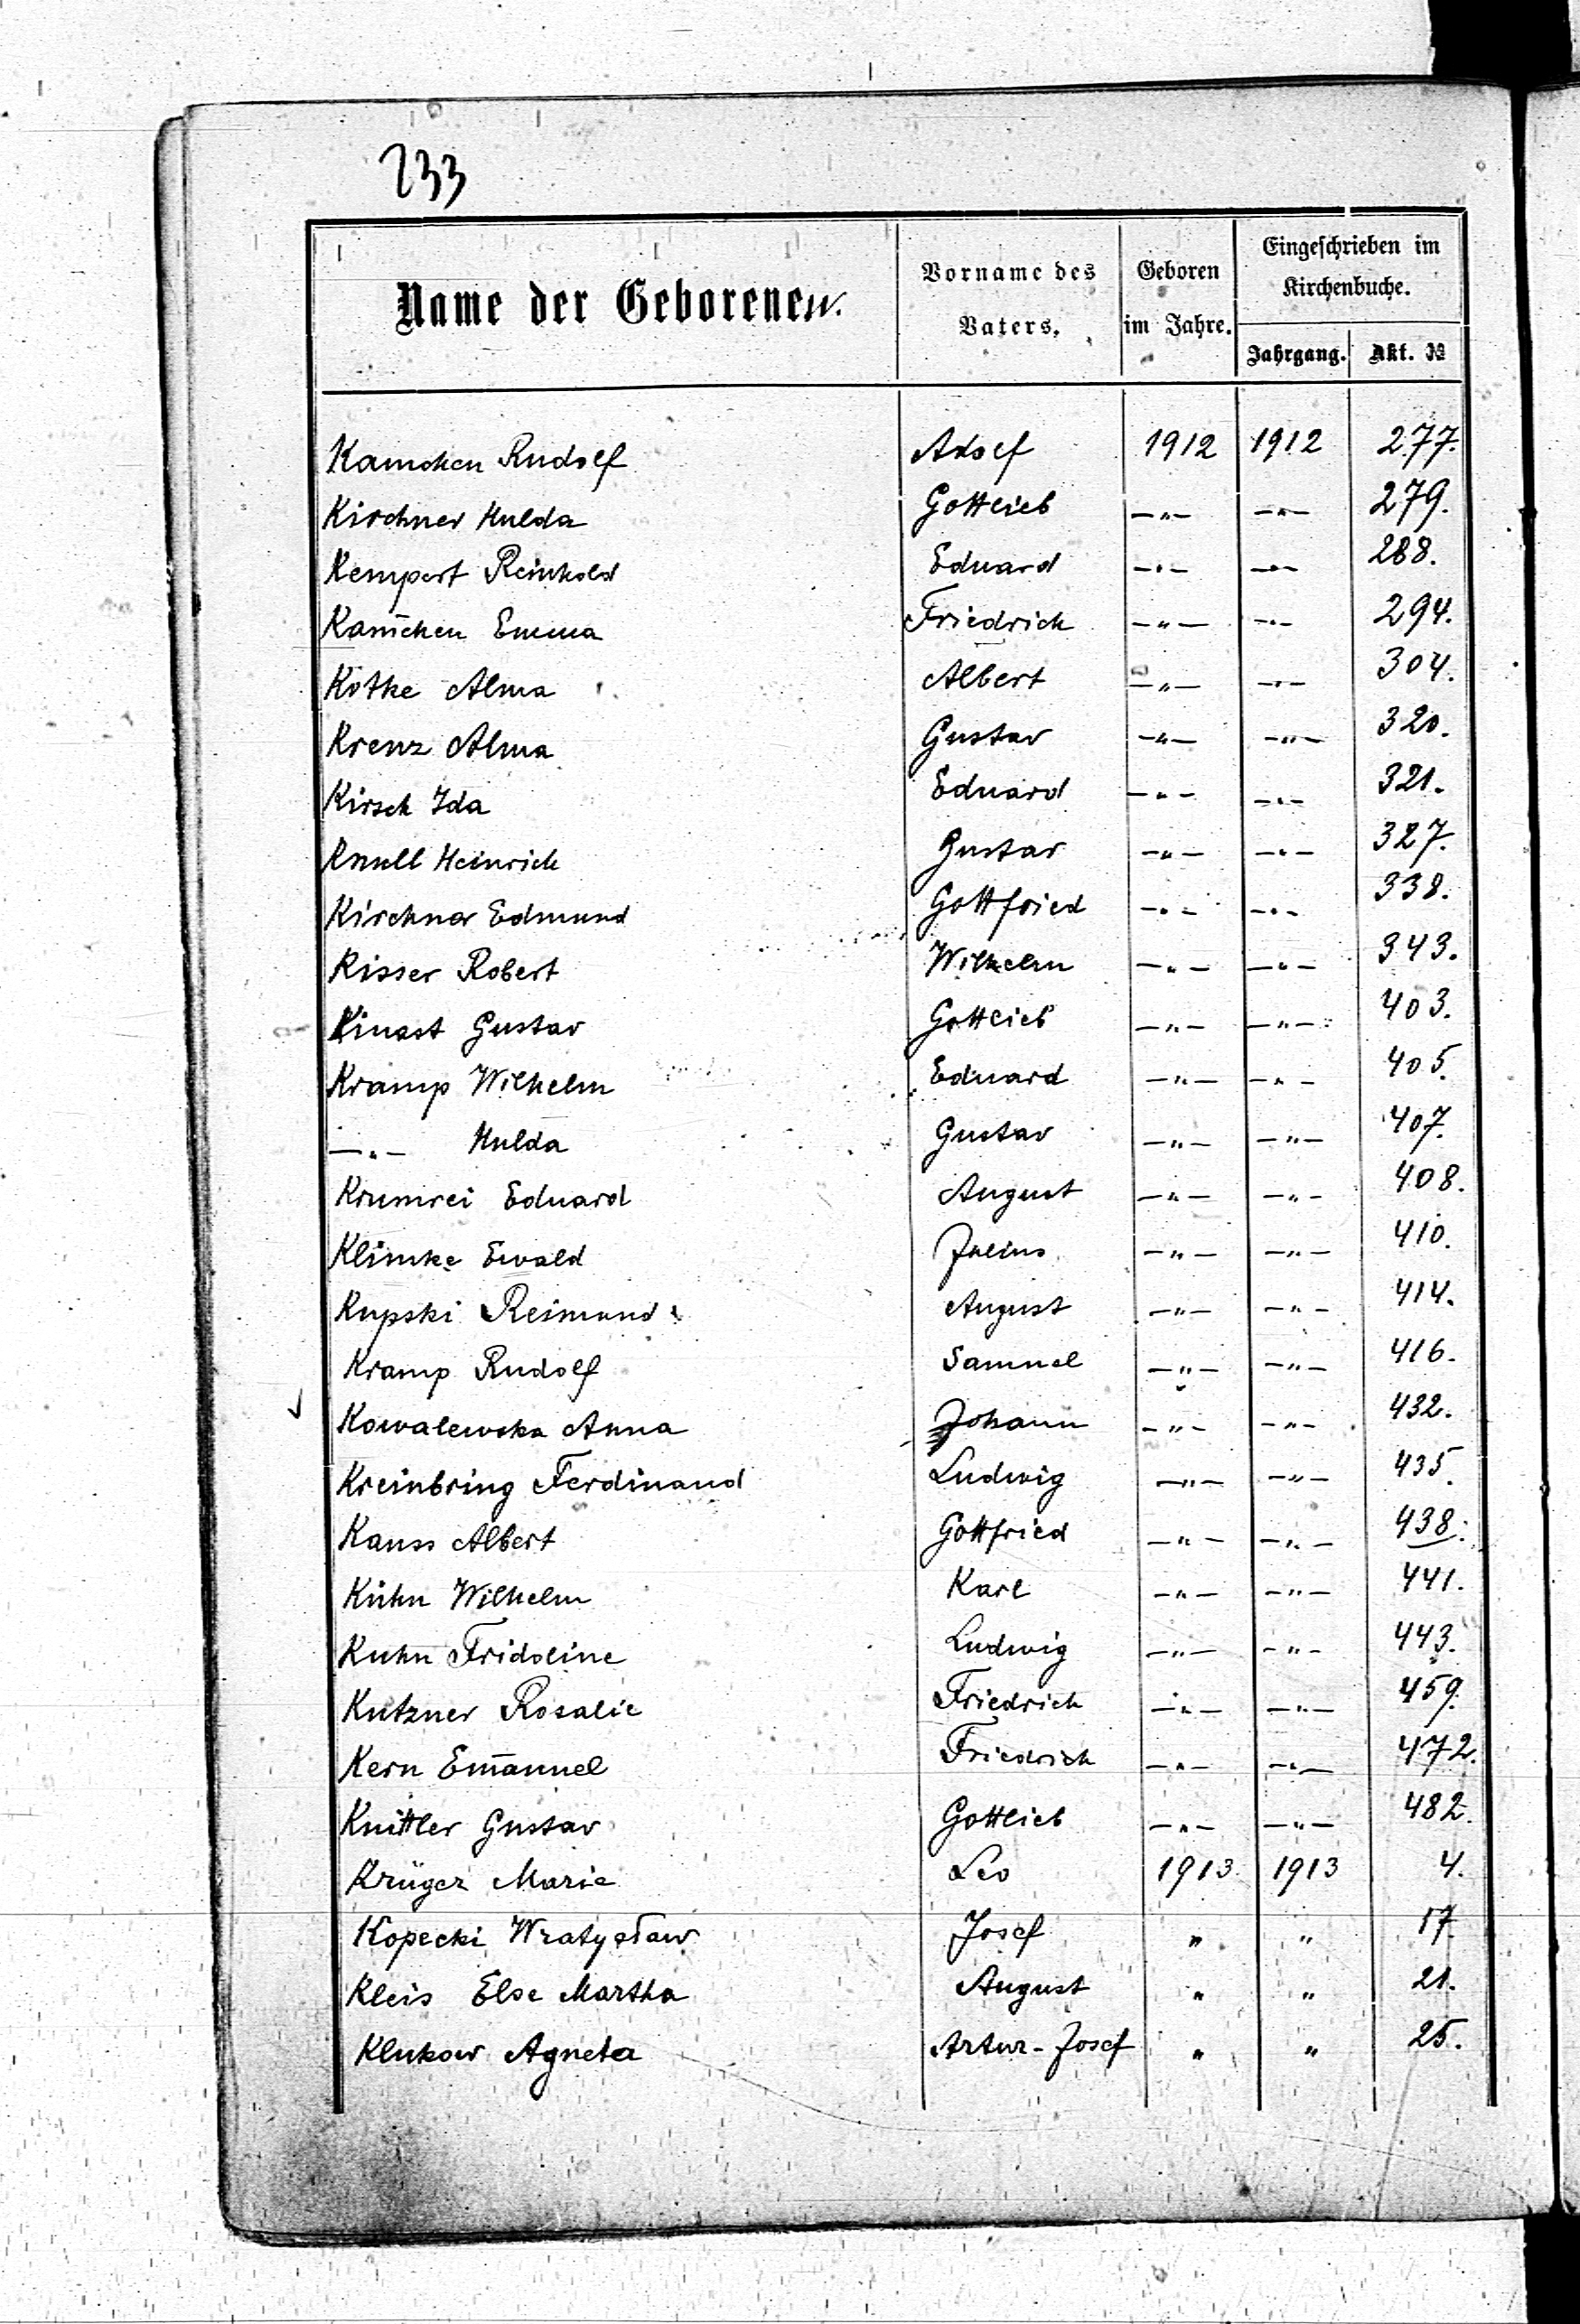 233
Name der Geborenen.
Vorname des Vaters.
Geboren im Jahre.
Eingeschrieben im Kirchenbuche.
Jahrgang. Akt. №
Kamchen Rudolf Adolf 1912 1912 277.
Kirchner Hulda Gottlieb —"— —"— 279.
Kempert Reinhold Eduard —"— —"— 288.
Kam̄chen Emma Friedrich —"— —"— 294.
Kotke Alma Albert —"— —"— 304.
Krenz Alma Gustav —"— —"— 320.
Kirsch Ida Eduard —"— —"— 321.
Knull Heinrich Gustav —"— —"— 327.
Kirchner Edmund Gottfried —"— —"— 338.
Kisser Robert Wilhelm —"— —"— 343.
Kinast Gustav Gottlieb —"— —"— 403.
Kramp Wilhelm Eduard —"— —"— 405.
—"— Hulda Gustav —"— —"— 407.
Krumrei Eduard August —"— —"— 408.
Klimke Ewald Julius —"— —"— 410.
Kupski Reimund August —"— —"— 414.
Kramp Rudolf Samuel —"— —"— 416.
Kowalewska Anna Johann —"— —"— 432.
Kreinbring Ferdinand Ludwig —"— —"— 435.
Kauss Albert Gottfried —"— —"— 438.
Kühn Wilhelm Karl —"— —"— 441.
Kuhn Fridoline Ludwig —"— —"— 443.
Kutzner Rosalie Friedrich —"— —"— 459.
Kern Em̄anuel Friedrich —"— —"— 472.
Knittler Gustav Gottlieb —"— —"— 482.
Krüger Marie Leo 1913 1913 4.
Kopecki Wratysław Josef " " 17.
Kleis Else Martha August " " 21.
Klukow Agneta Artur-Josef " " 25.